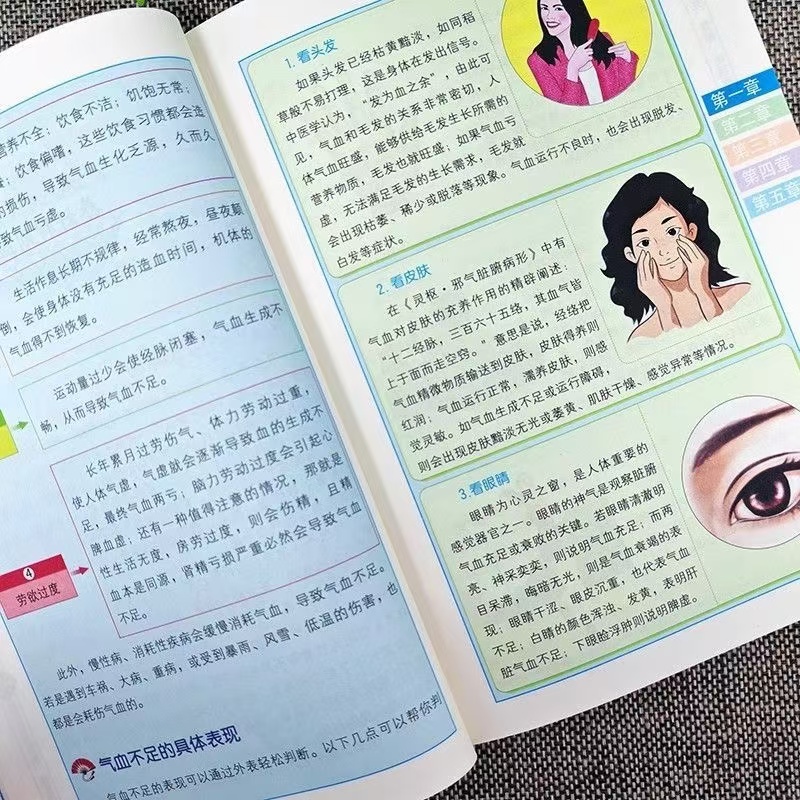 营养不全；饮食不洁；饥饱无常；
饮食偏嗜，这些饮食习惯都会造
的损伤，导致气血生化乏源，久而久
导致气血亏虚。
生活作息长期不规律，经常熬夜，昼夜颠
倒，会使身体没有充足的造血时间，机体的
气血得不到恢复。
运动量过少会使经脉闭塞，气血生成不
畅，从而导致气血不足。
④
劳欲过度
长年累月过劳伤气、体力劳动过重，
使人体气虚，气虚就会逐渐导致血的生成不
足，最终气血两亏；脑力劳动过度会引起心
脾血虚；还有一种值得注意的情况，那就是
性生活无度，房劳过度，则会伤精，且精
血本是同源，肾精亏损严重必然会导致气血
不足。
此外，慢性病、消耗性疾病会缓慢消耗气血，导致气血不足。
若是遇到车祸、大病、重病，或受到暴雨、风雪、低温的伤害，也
都是会耗伤气血的。
气血不足的具体表现
气血不足的表现可以通过外表轻松判断。以下几点可以帮你判
1.看头发
如果头发已经枯黄黯淡，如同稻
草般不易打理，这是身体在发出信号。
中医学认为，“发为血之余”，由此可
见，气血和毛发的关系非常密切，人
体气血旺盛，能够供给毛发生长所需的
营养物质，毛发也就旺盛；如果气血亏
虚，无法满足毛发的生长需求，毛发就
会出现枯萎、稀少或脱落等现象。气血运行不良时，也会出现脱发、
白发等症状。
2.看皮肤
在《灵枢·邪气脏腑病形》中有
气血对皮肤的充养作用的精辟阐述：
“十二经脉，三百六十五络，其血气皆
上于面而走空窍。”意思是说，经络把
气血精微物质输送到皮肤，皮肤得养则
红润；气血运行正常，濡养皮肤，则感
觉灵敏。如气血生成不足或运行障碍，
则会出现皮肤黯淡无光或萎黄、肌肤干燥、感觉异常等情况。
3.看眼睛
眼睛为心灵之窗，是人体重要的
感觉器官之一。眼睛的神气是观察脏腑
气血充足或衰败的关键。若眼睛清澈明
亮、神采奕奕，则说明气血充足；而两
目呆滞，晦暗无光，则是气血衰竭的表
现；眼睛干涩、眼皮沉重，也代表气血
不足；白睛的颜色浑浊、发黄，表明肝
脏气血不足；下眼睑浮肿则说明脾虚。
第一章
第二章
第三章
第四章
第五章